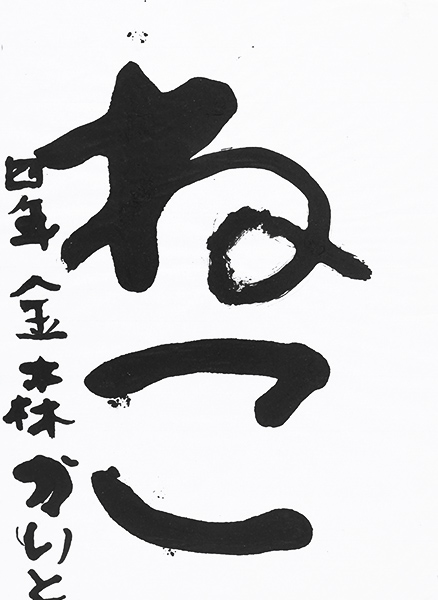 ねこ
四年 金森かいと